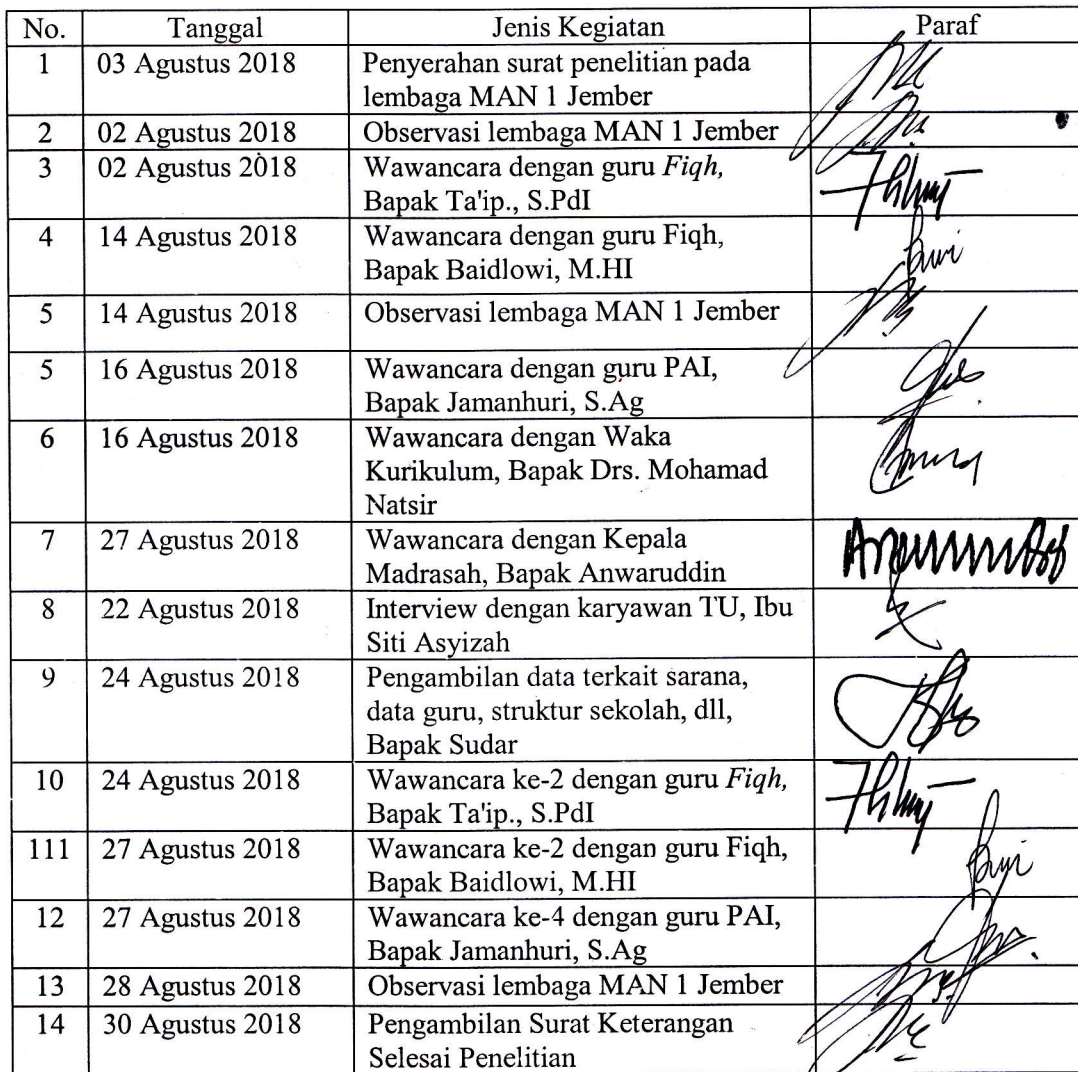 No. Tanggal Jenis Kegiatan Paraf
1 03 Agustus 2018 Penyerahan surat penelitian pada
lembaga MAN 1 Jember
2 02 Agustus 2018 Observasi lembaga MAN 1 Jember
3 02 Agustus 2018 Wawancara dengan guru Fiqh,
Bapak Ta'ip., S.PdI
4 14 Agustus 2018 Wawancara dengan guru Fiqh,
Bapak Baidlowi, M.HI
5 14 Agustus 2018 Observasi lembaga MAN 1 Jember
5 16 Agustus 2018 Wawancara dengan guru PAI,
Bapak Jamanhuri, S.Ag
6 16 Agustus 2018 Wawancara dengan Waka
Kurikulum, Bapak Drs. Mohamad
Natsir
7 27 Agustus 2018 Wawancara dengan Kepala
Madrasah, Bapak Anwaruddin
8 22 Agustus 2018 Interview dengan karyawan TU, Ibu
Siti Asyizah
9 24 Agustus 2018 Pengambilan data terkait sarana,
data guru, struktur sekolah, dll,
Bapak Sudar
10 24 Agustus 2018 Wawancara ke-2 dengan guru Fiqh,
Bapak Ta'ip., S.PdI
111 27 Agustus 2018 Wawancara ke-2 dengan guru Fiqh,
Bapak Baidlowi, M.HI
12 27 Agustus 2018 Wawancara ke-4 dengan guru PAI,
Bapak Jamanhuri, S.Ag
13 28 Agustus 2018 Observasi lembaga MAN 1 Jember
14 30 Agustus 2018 Pengambilan Surat Keterangan
Selesai Penelitian